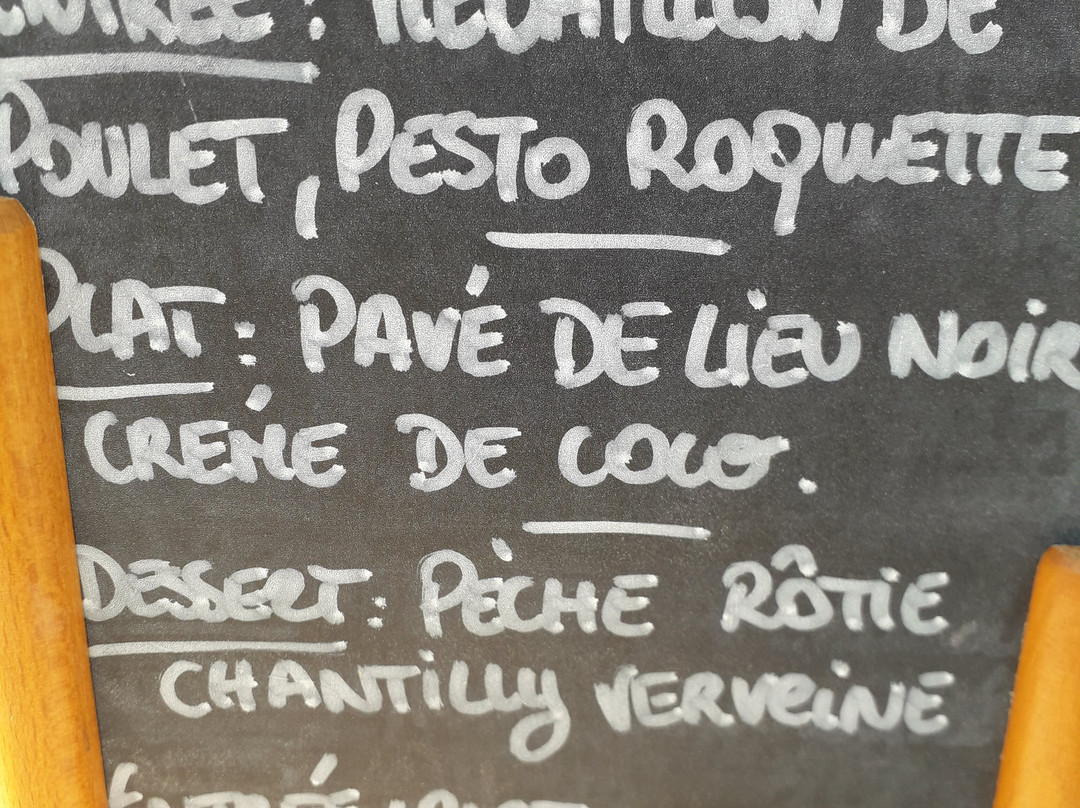 ENTRÉE : MÉDAILLON DE
POULET, PESTO ROQUETTE
PLAT : PAVÉ DE LIEU NOIR
CRÈME DE COCO.
DESSERT : PÈCHE RÔTIE
CHANTILLY VERVEINE
ENTRÉE